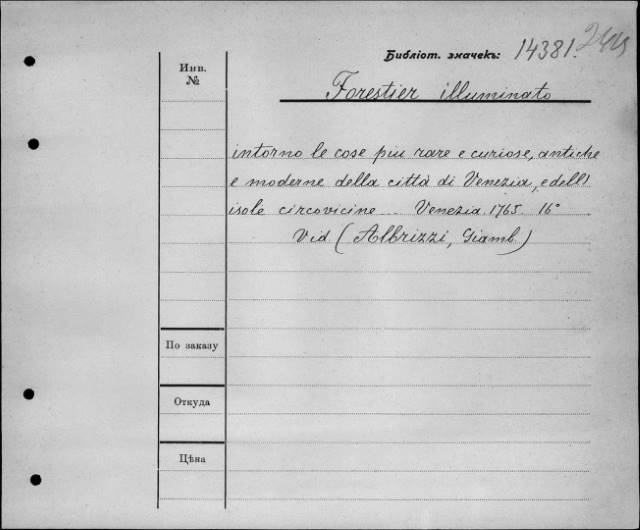 Библіот. значекъ: 14381.
Инв.
№
Forestier illuminato
intorno le cose piu rare e curiose, antiche
e moderne della città di Venezia, e dell'
isole circovicine .. Venezia. 1765. 16°
Vid. (Albrizzi, Giamb.)
По заказу
Откуда
Цѣна